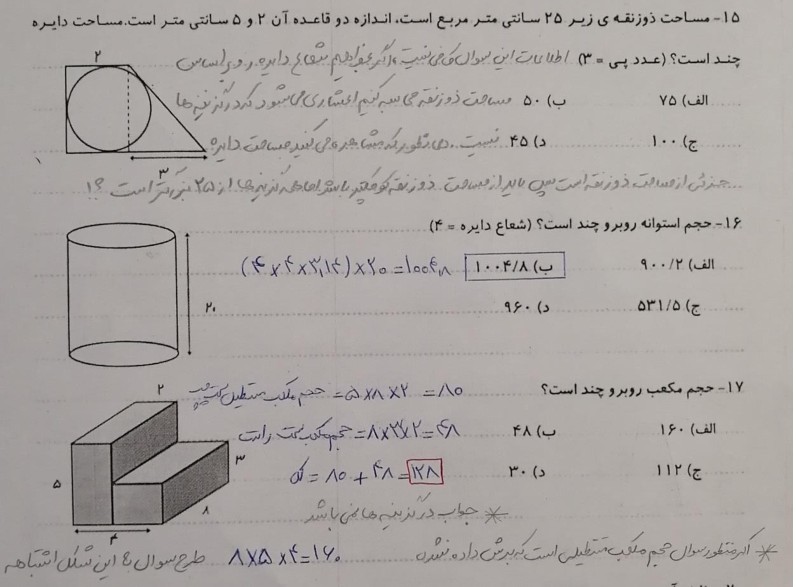 ۱۵- مساحت ذوزنقه ی زیر ۲۵ سانتی متر مربع است، اندازه دو قاعده آن ۲ و ۵ سانتی متر است.مساحت دایره
چند است؟ (عدد پی = ۳) اطلاعات این سوال کافی نیست، اگر بخواهیم شعاع دایره رو بر اساس
الف) ۷۵ ب) ۵۰ مساحت ذوزنقه محاسبه کنیم اعشاری می شود که در گزینه ها
ج) ۱۰۰ د) ۴۵ نیست. همانطور که مشاهده می کنید مساحت دایره
جزئی از مساحت ذوزنقه است پس باید از مساحت ذوزنقه کوچکتر باشد اما همه گزینه ها از ۲۵ بزرگتر است ؟!
۲
۳
۱۶- حجم استوانه روبرو چند است؟ (شعاع دایره = ۴)
الف) ۹۰۰/۲ ب) ۱۰۰۴/۸ (۴×۴×۳٫۱۴)×۲۰=۱۰۰۴٫۸
ج) ۵۳۱/۵ د) ۹۶۰
۲۰
۱۷- حجم مکعب روبرو چند است؟ ۵×۸×۲=۸۰ = حجم مکعب مستطیل سمت چپ
الف) ۱۶۰ ب) ۴۸ ۸×۳×۲=۴۸ = حجم مکعب سمت راست
ج) ۱۱۲ د) ۳۰ کل = ۸۰+۴۸=۱۲۸
۲
۳
۵
۸
۴
* جواب در گزینه ها نمی باشد
* اگر منظور سوال حجم مکعب مستطیلی است که برش داده نشده ۸×۵×۴=۱۶۰ طرح سوال با این شکل اشتباهه